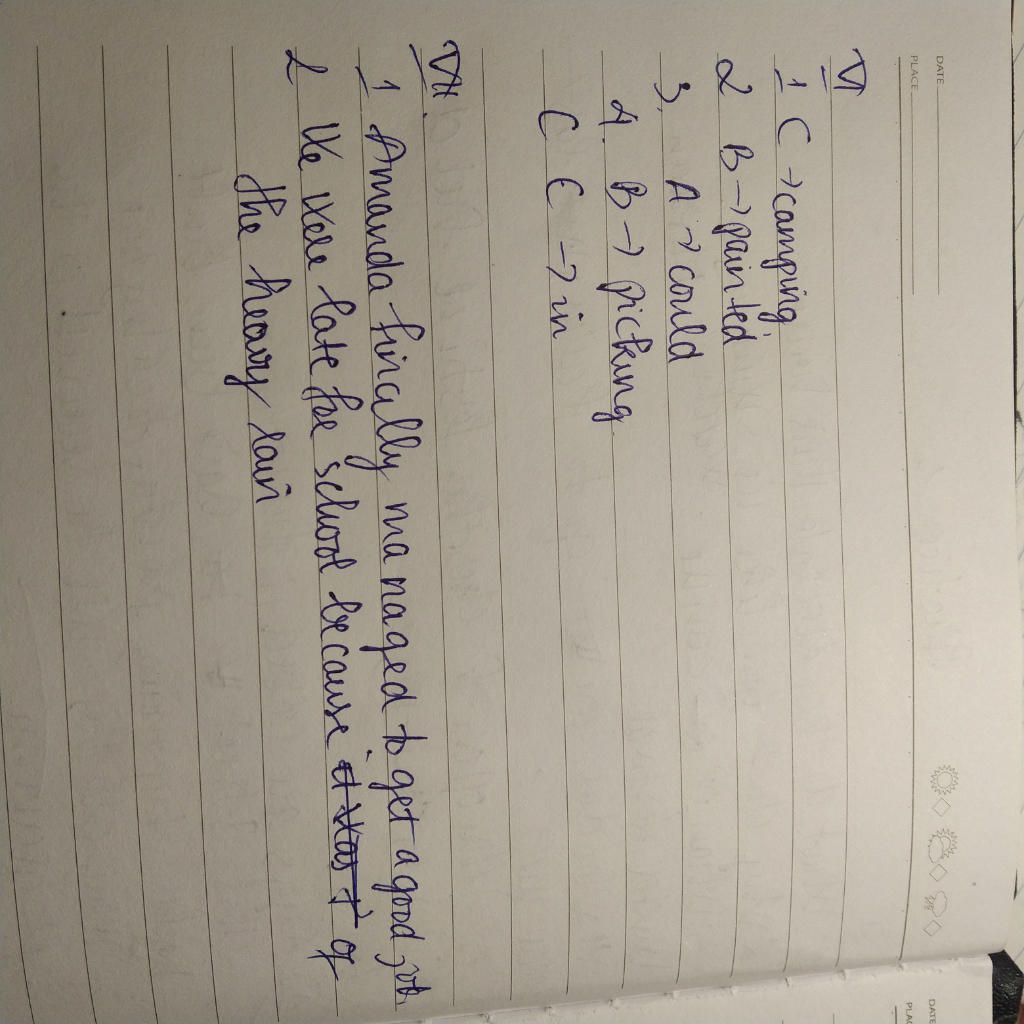 DATE
PLACE
VI
1 C → camping
2 B → painted
3. A → could
4. B → picking
C C → in
VII.
1 Amanda finally managed to get a good job.
2 We were late for school because it was r of
the heavy rain
DATE
PLAC